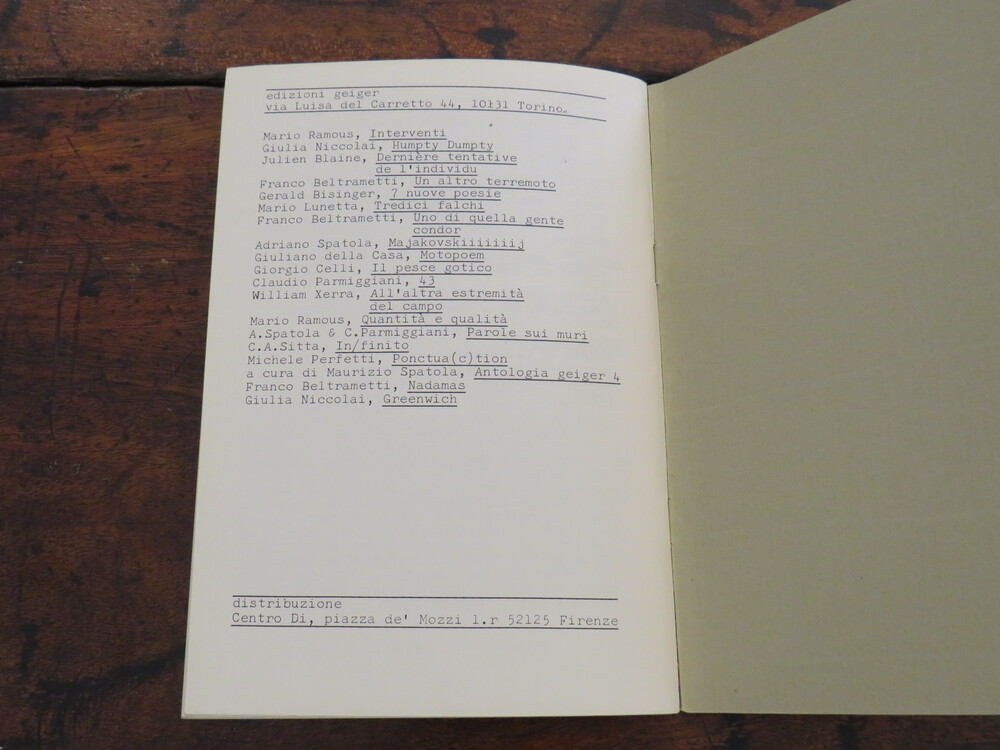 edizioni geiger
via Luisa del Carretto 44, 10131 Torino.
Mario Ramous, Interventi
Giulia Niccolai, Humpty Dumpty
Julien Blaine, Dernière tentative
de l'individu
Franco Beltrametti, Un altro terremoto
Gerald Bisinger, 7 nuove poesie
Mario Lunetta, Tredici falchi
Franco Beltrametti, Uno di quella gente
condor
Adriano Spatola, Majakovskiiiiiiij
Giuliano della Casa, Motopoem
Giorgio Celli, Il pesce gotico
Claudio Parmiggiani, 43
William Xerra, All'altra estremità
del campo
Mario Ramous, Quantità e qualità
A.Spatola & C.Parmiggiani, Parole sui muri
C.A.Sitta, In/finito
Michele Perfetti, Ponctua(c)tion
a cura di Maurizio Spatola, Antologia geiger 4
Franco Beltrametti, Nadamas
Giulia Niccolai, Greenwich
distribuzione
Centro Di, piazza de' Mozzi 1.r 52125 Firenze